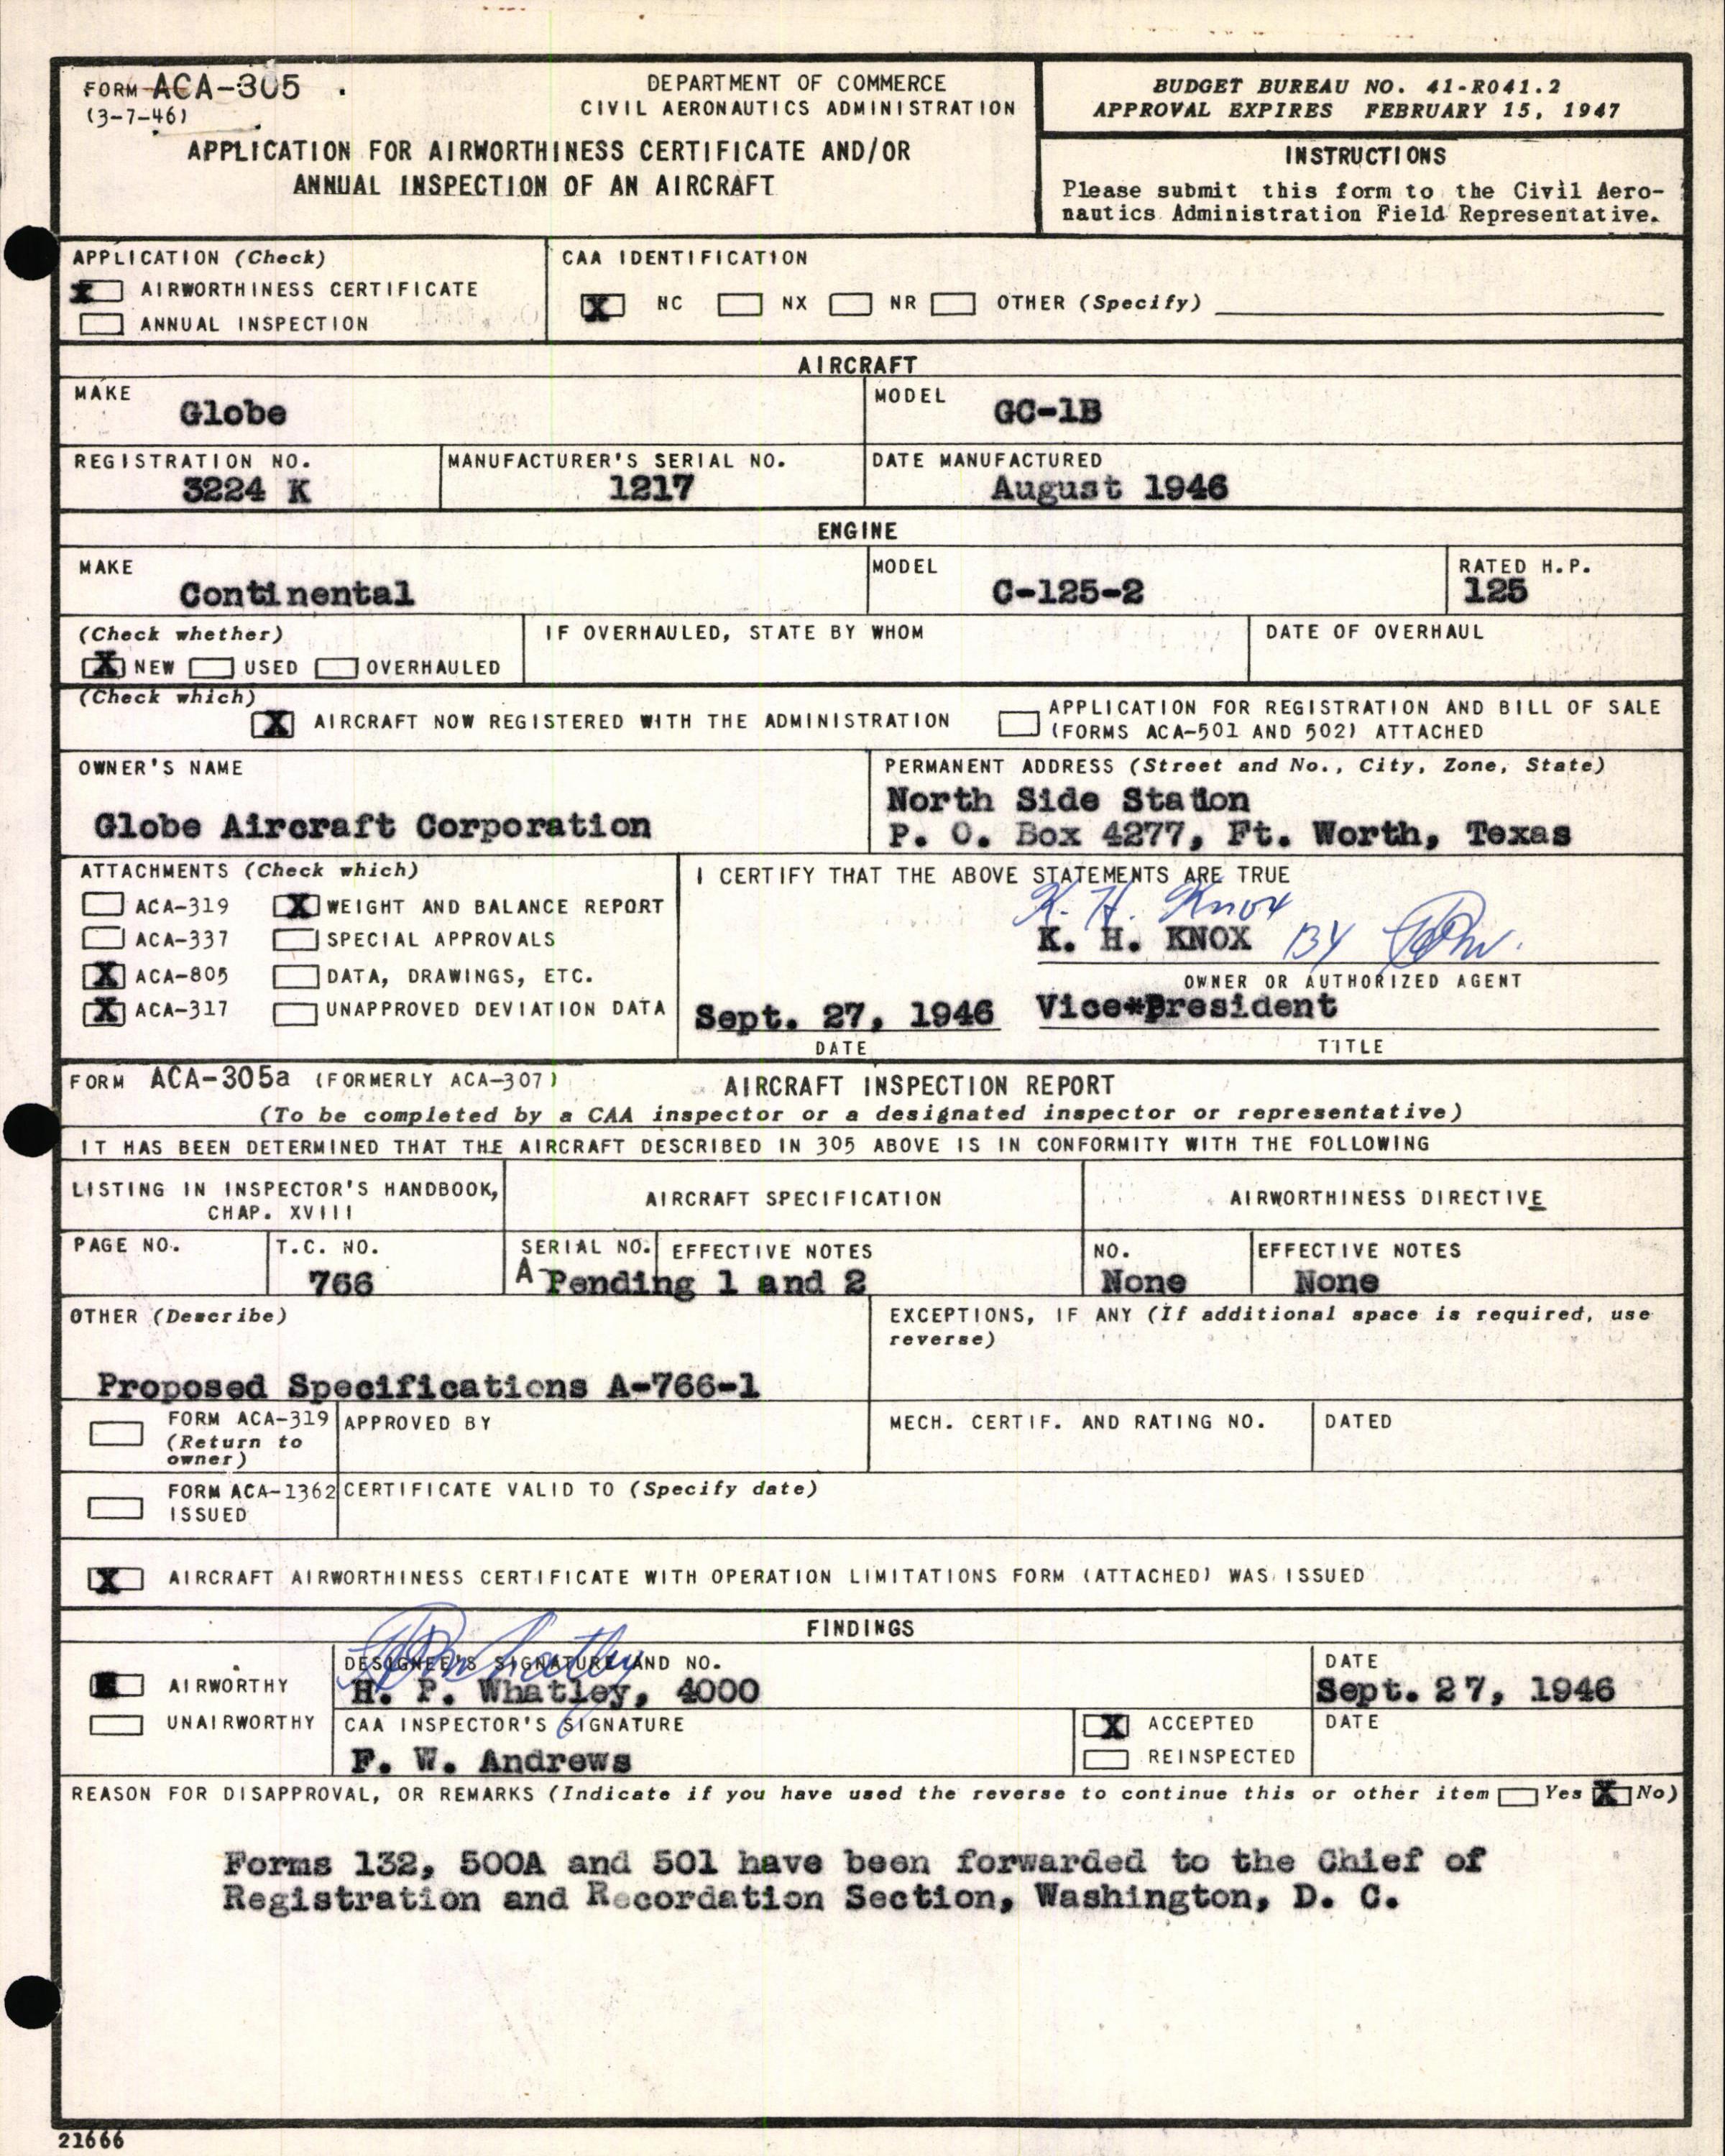 FORM ACA-305
(3-7-46)
DEPARTMENT OF COMMERCE
CIVIL AERONAUTICS ADMINISTRATION
APPLICATION FOR AIRWORTHINESS CERTIFICATE AND/OR
ANNUAL INSPECTION OF AN AIRCRAFT
BUDGET BUREAU NO. 41-R041.2
APPROVAL EXPIRES FEBRUARY 15, 1947
INSTRUCTIONS
Please submit this form to the Civil Aero-
nautics Administration Field Representative.
APPLICATION (Check)
X AIRWORTHINESS CERTIFICATE
ANNUAL INSPECTION
CAA IDENTIFICATION
X NC NX NR OTHER (Specify)
AIRCRAFT
MAKE
Globe
MODEL
GC-1B
REGISTRATION NO.
3224 K
MANUFACTURER'S SERIAL NO.
1217
DATE MANUFACTURED
August 1946
ENGINE
MAKE
Continental
MODEL
C-125-2
RATED H.P.
125
(Check whether)
X NEW USED OVERHAULED
IF OVERHAULED, STATE BY WHOM
DATE OF OVERHAUL
(Check which)
X AIRCRAFT NOW REGISTERED WITH THE ADMINISTRATION
APPLICATION FOR REGISTRATION AND BILL OF SALE
(FORMS ACA-501 AND 502) ATTACHED
OWNER'S NAME
Globe Aircraft Corporation
PERMANENT ADDRESS (Street and No., City, Zone, State)
North Side Station
P. O. Box 4277, Ft. Worth, Texas
ATTACHMENTS (Check which)
ACA-319 X WEIGHT AND BALANCE REPORT
ACA-337 SPECIAL APPROVALS
X ACA-805 DATA, DRAWINGS, ETC.
X ACA-317 UNAPPROVED DEVIATION DATA
I CERTIFY THAT THE ABOVE STATEMENTS ARE TRUE
K. H. Knox
K. H. KNOX BY
OWNER OR AUTHORIZED AGENT
Sept. 27, 1946 Vice*President
DATE TITLE
FORM ACA-305a (FORMERLY ACA-307)
AIRCRAFT INSPECTION REPORT
(To be completed by a CAA inspector or a designated inspector or representative)
IT HAS BEEN DETERMINED THAT THE AIRCRAFT DESCRIBED IN 305 ABOVE IS IN CONFORMITY WITH THE FOLLOWING
LISTING IN INSPECTOR'S HANDBOOK,
CHAP. XVIII
AIRCRAFT SPECIFICATION
AIRWORTHINESS DIRECTIVE
PAGE NO.
T.C. NO.
766
SERIAL NO. EFFECTIVE NOTES
A-Pending 1 and 2
NO.
None
EFFECTIVE NOTES
None
OTHER (Describe)
Proposed Specifications A-766-1
EXCEPTIONS, IF ANY (If additional space is required, use
reverse)
FORM ACA-319
(Return to
owner)
APPROVED BY
MECH. CERTIF. AND RATING NO.
DATED
FORM ACA-1362
ISSUED
CERTIFICATE VALID TO (Specify date)
X AIRCRAFT AIRWORTHINESS CERTIFICATE WITH OPERATION LIMITATIONS FORM (ATTACHED) WAS ISSUED
FINDINGS
AIRWORTHY
UNAIRWORTHY
DESIGNEE'S SIGNATURE AND NO.
H. P. Whatley, 4000
DATE
Sept. 27, 1946
CAA INSPECTOR'S SIGNATURE
F. W. Andrews
X ACCEPTED
REINSPECTED
DATE
REASON FOR DISAPPROVAL, OR REMARKS (Indicate if you have used the reverse to continue this or other item Yes X No)
Forms 132, 500A and 501 have been forwarded to the Chief of
Registration and Recordation Section, Washington, D. C.
21666